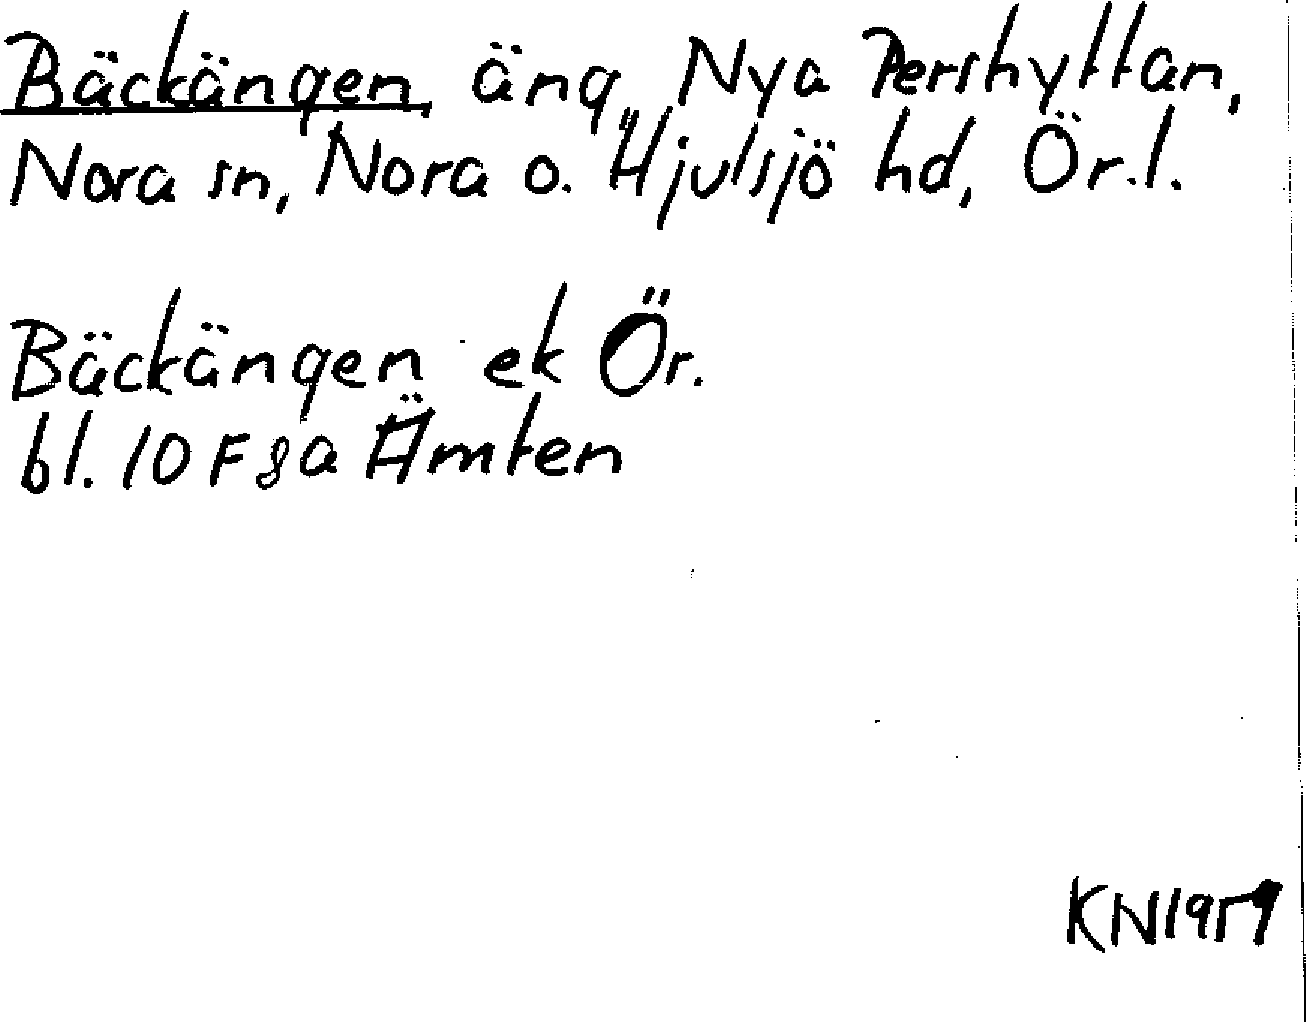 Bäckängen, äng, Nya Pershyttan,
Nora sn, Nora o. Hjulsjö hd, Ör.l.
Bäckängen ek Ör.
bl. 10 F 8a Ämten
KN 1959